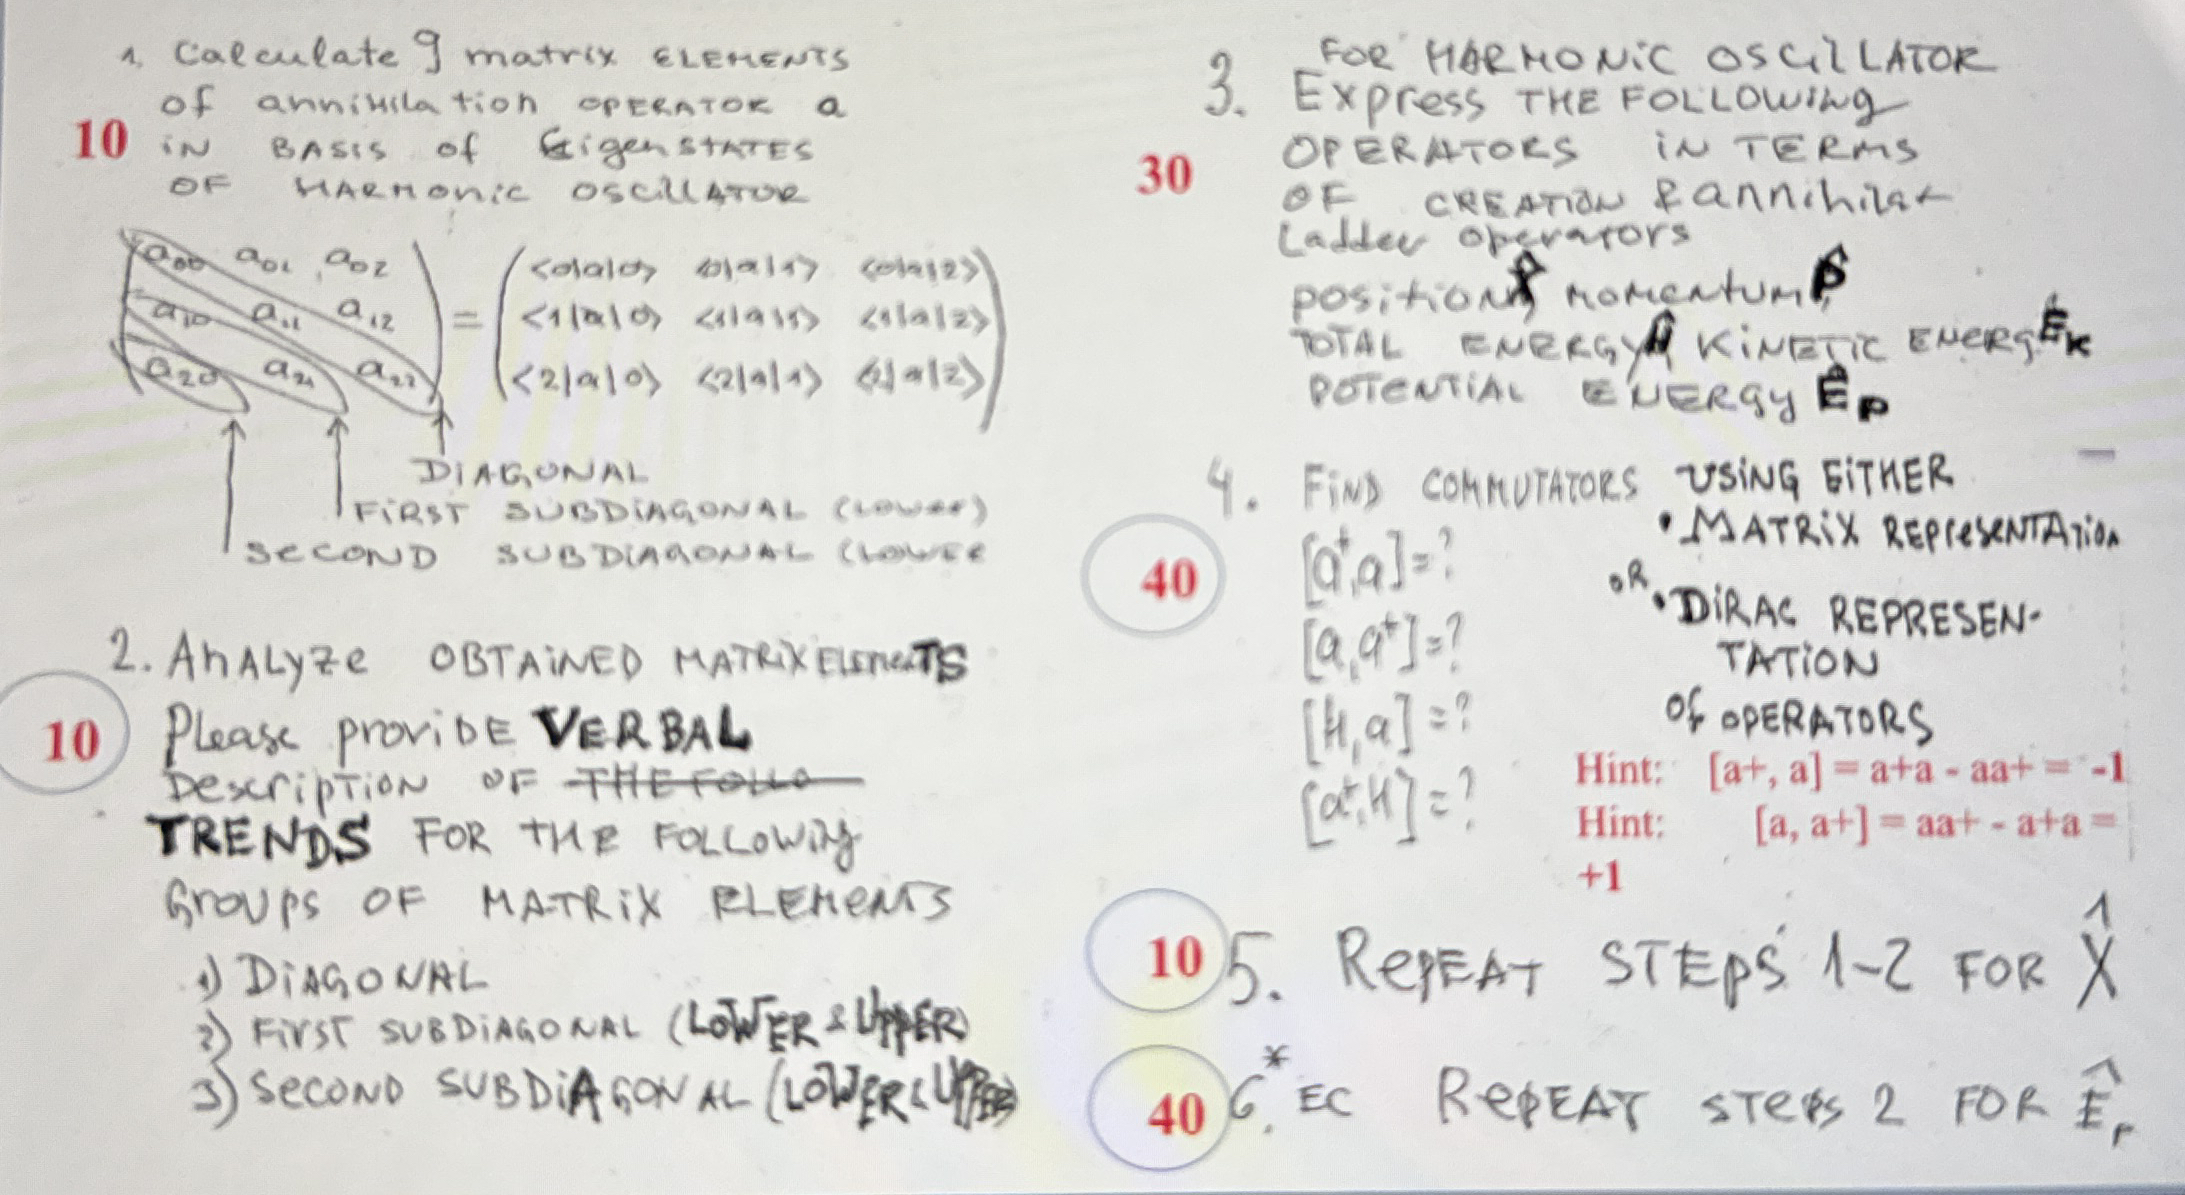 1. Calculate 9 matrix ELEMENTS
of annihilation OPERATOR a
10 iN BASIS of EigenSTATES
OF HARMONIC OSCILLATOR
a00 a01 a02
a10 a11 a12
a20 a21 a22
=
<0|a|0> <0|a|1> <0|a|2>
<1|a|0> <1|a|1> <1|a|2>
<2|a|0> <2|a|1> <2|a|2>
DIAGONAL
FIRST SUBDIAGONAL (LOWER)
SECOND SUBDIAGONAL (LOWER
2. ANALYZE OBTAINED MATRIX ELEMENTS
10 Please proviDE VERBAL
DEscripTION OF THE FOLLO
TRENDS FOR THE FOLLOWing
GROUPS OF MATRIX ELEMENTS
1) DIAGONAL
2) FIRST SUBDIAGONAL (LOWER & UPPER)
3) SECOND SUBDIAGONAL (LOWER & UPPER)
FOR HARMONIC OSCILLATOR
3. Express THE FOLLOWing
OPERATORS iN TERMS
30 OF CREATION & annihilat
Ladder operators
position x̂, momentum p̂,
TOTAL ENERGY Ĥ KINETIC ENERGY Êk
POTENTIAL ENERGY Êp
4. FIND COMMUTATORS USING EITHER
• MATRIX REPRESENTATION
OR • DIRAC REPRESEN-
TATION
OF OPERATORS
40 [a+,a]=?
[a,a+]=?
[H,a]=?
[a+,H]=?
Hint: [a+, a] = a+a - aa+ = -1
Hint: [a, a+] = aa+ - a+a =
+1
10 5. REPEAT STEPS 1-2 FOR X̂
40 6.* EC REPEAT STEPS 2 FOR Êp